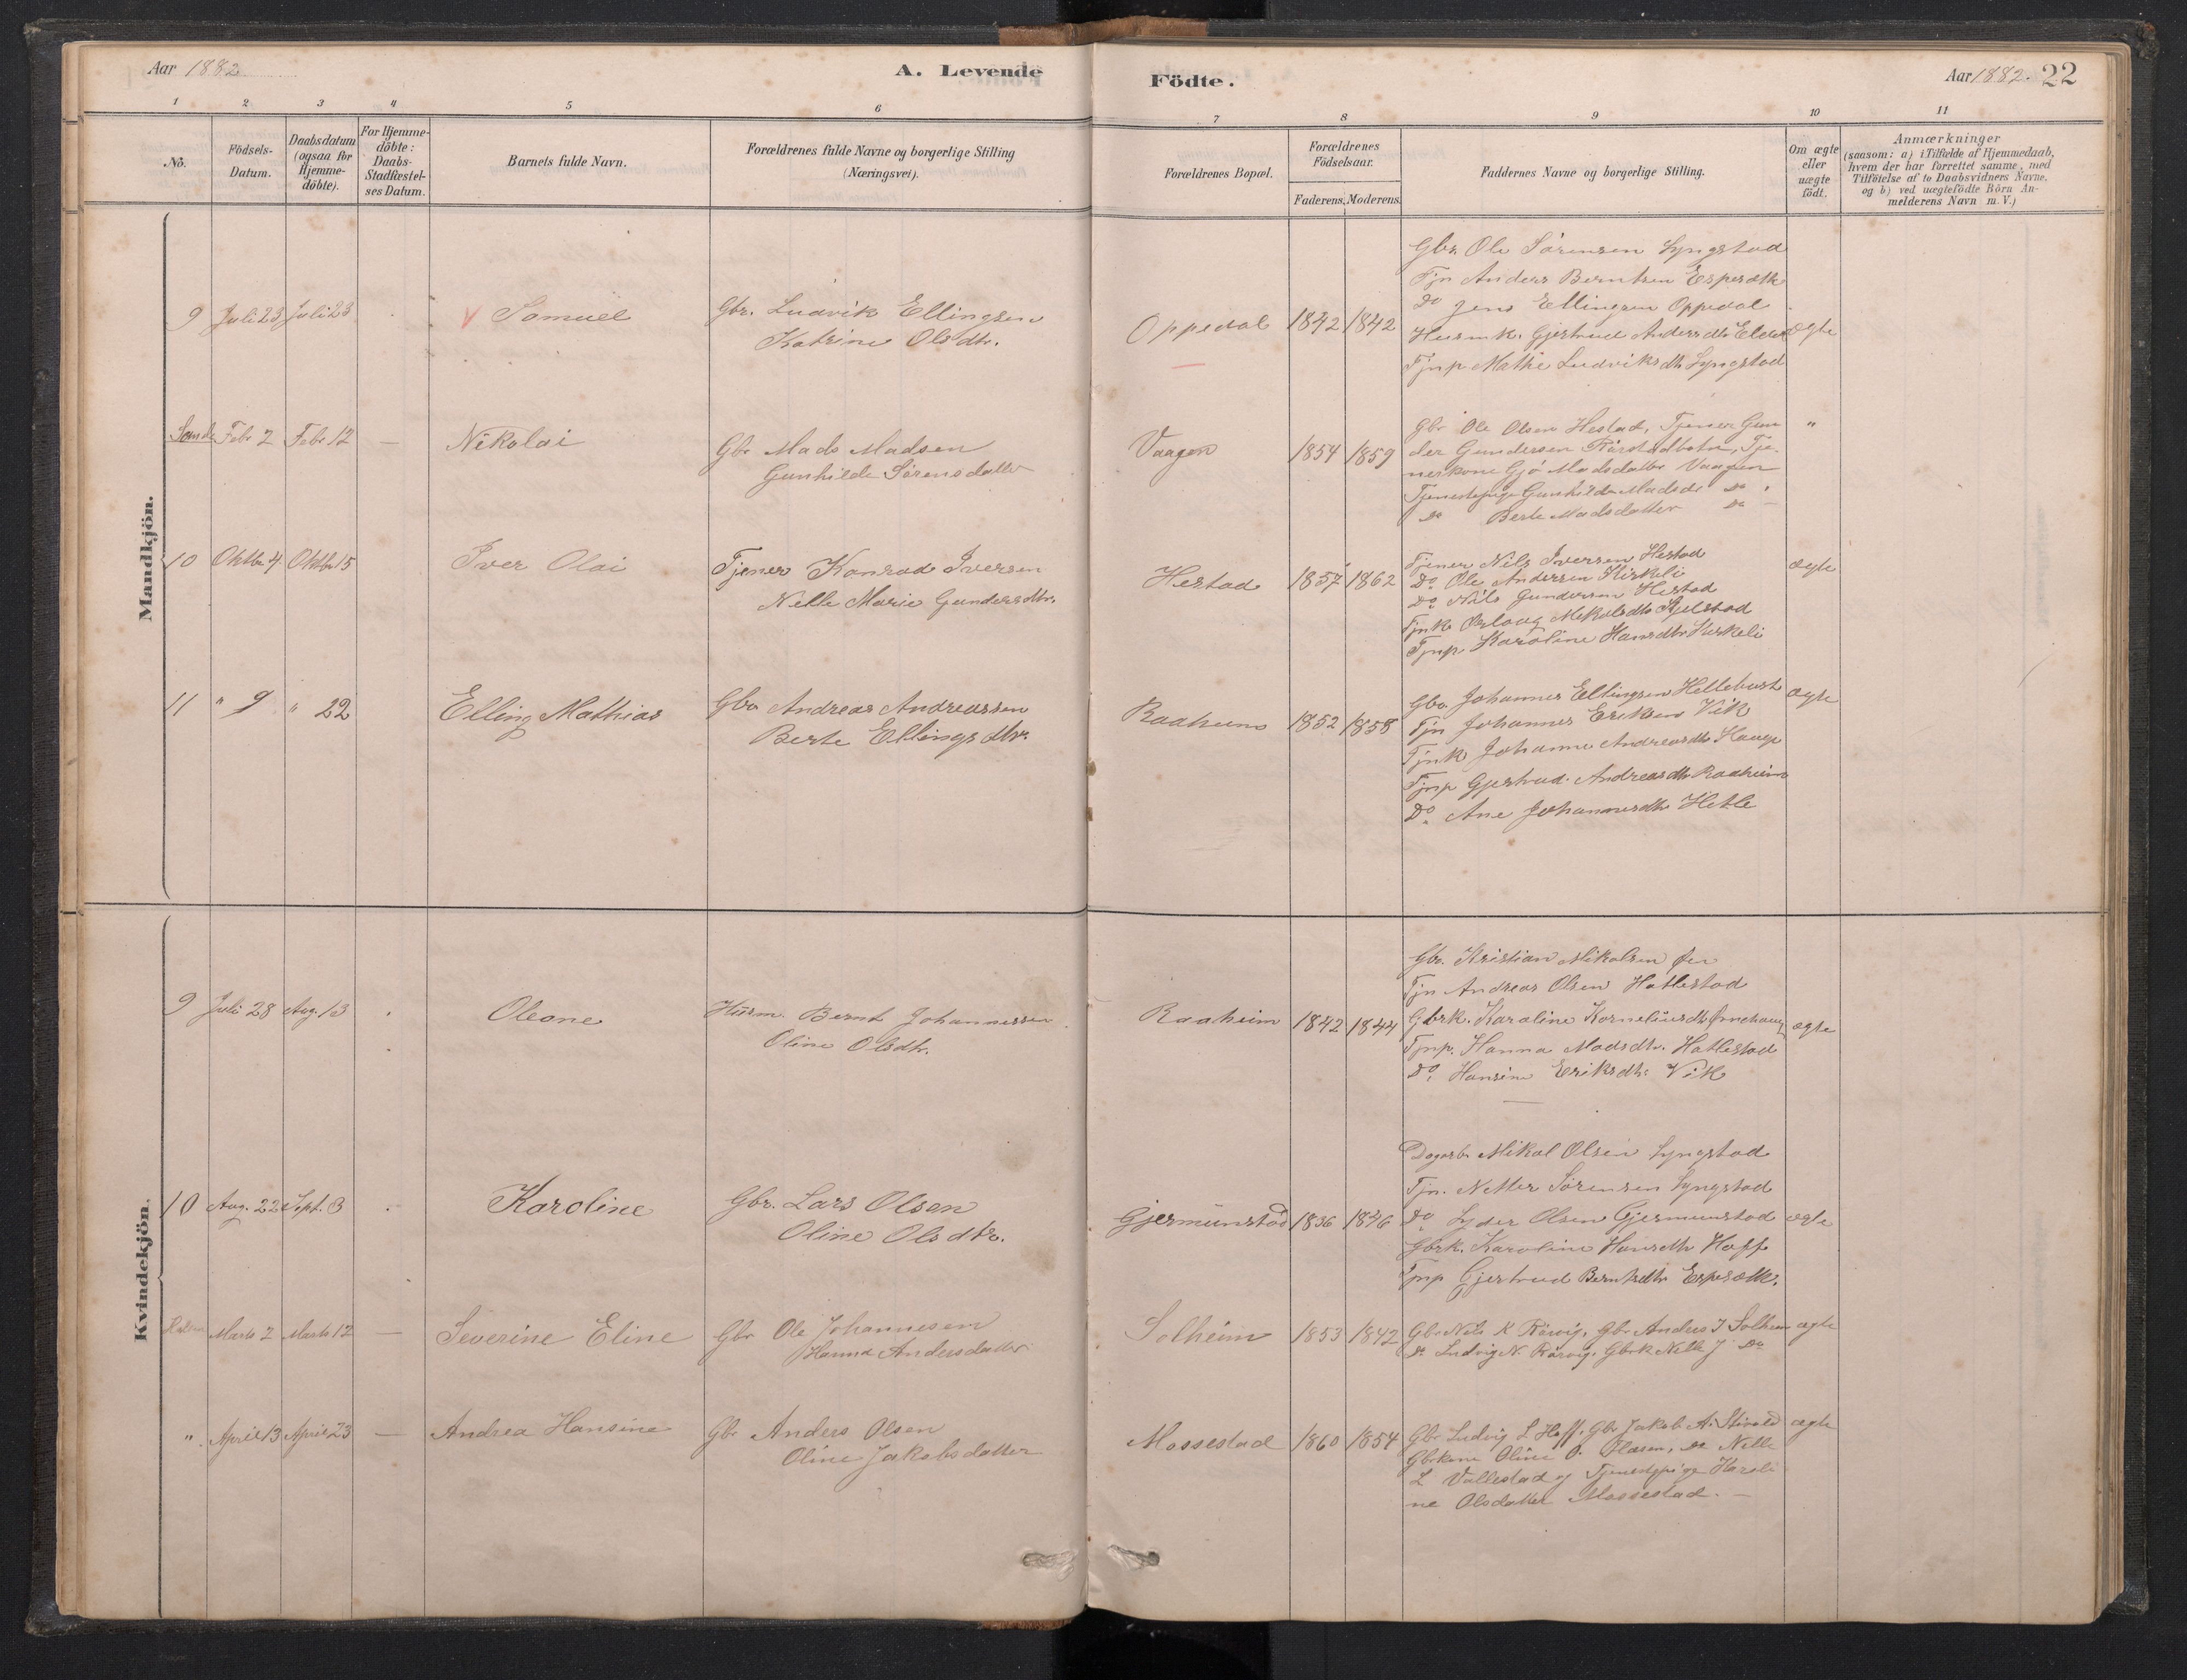 Aar 1882
A. Levende
Födte.
Aar 1882.
22
1 2 3 4 5 6 7 8 9 10 11
No.
Födsels-
Datum.
Daabsdatum
(ogsaa for
Hjemme-
döbte).
For Hjemme-
döbte:
Daabs-
Stadfæstel-
ses Datum.
Barnets fulde Navn.
Forældrenes fulde Navne og borgerlige Stilling
(Næringsvei).
Forældrenes Bopæl.
Forældrenes
Födselsaar.
Faderens. Moderens.
Faddernes Navne og borgerlige Stilling.
Om ægte
eller
uægte
födt.
Anmærkninger
(saasom: a) i Tilfælde af Hjemmedaab,
hvem der har forrettet samme, med
Tilföielse af to Daabsvidners Navne,
og b) ved uægtefödte Börn An-
melderens Navn m. V.)
Mandkjön.
9 Juli 23 Juli 23 Samuel
Gbr. Ludvik Ellingsen
Katrine Olsdtr.
Oppedal 1842 1842
Gbr. Ole Sörensen Lyngstad
Tjn Anders Berntsen Espesætk
Do Jens Ellingsen Oppedal
Husmk. Gjertrud Andersdtr
Tjnp Mathe Ludviksdtr Lyngstad
ægte
Febr 2 Febr 12 — Nikolai
Gbr Mads Madsen
Gunhilde Sörensdatter
Vaagen 1854 1859
Gbr Ole Olsen Hestad, Tjener Gun
der Gundersen Tje-
nerkone Gjö Madsdatter Vaagen
Tjenestepige Gunhilde Madsd Do
Do Berte Madsdatter Do —
"
10 Oktbr 4 Oktbr 15 Iver Olai
Tjener Konrad Iversen
Nelle Marie Gundersdtr.
Hestad 1857 1862
Tjener Nils Iversen Hestad
Do Ole Andersen Kirkeli
Do Nils Gundersen Hestad
Tjnk Mikalsdtr
Tjnp Karoline Hansdtr Kirkeli
ægte
11 " 9 " 22 Elling Mathias
Gbr Andreas Andreassen
Berte Ellingsdtr.
Raaheim 1852 1858
Gbr Johannes Ellingsen Hellebust
Tjn Johannes Eriksen Vik
Tjnk Johanne Andreasdtr Hauge
Tjnp Gjertrud Andreasdtr Raaheim
Do Ane Johannesdtr Hetle
ægte
Kvindekjön.
9 Juli 28 Aug. 13 Oleane
Husm. Bernt Johannessen
Oline Olsdtr.
Raaheim 1842 1844
Gbr. Kristian Mikalsen
Tjn Andreas Olsen Hatlestad
Gbrk. Karoline Korneliusdtr
Tjnp. Hanna Madsdtr. Hatlestad
Do Hansine Eriksdtr. Vik
ægte
10 Aug. 22 Sept. 3 Karoline
Gbr. Lars Olsen
Oline Olsdtr.
Gjermunstad 1836 1846
Dagarb. Mikal Olsen Lyngstad
Tjn. Sörensen Lyngstad
Do Lyder Olsen Gjermunstad
Gbrk. Karoline Hansdtr Hoff
Tjnp Gjertrud Berntsdtr
ægte
Marts 2 Marts 12 — Severine Eline
Gbr Ole Johannesen
Hanna Andersdatter
Solheim 1853 1842
Gbr Nils K Rörvig, Gbr Andres J Solheim
Do Ludvig N. Rörvig, Gbrk Nelle J Do
ægte
" April 13 April 23 — Andrea Hansine
Gbr Anders Olsen
Oline Jakobsdatter
Mossestad 1860 1854
Gbr Ludvig L Hoff, Gbr Jakob A.
Gbrkone Oline O. Do Nelle
L Vallestad og Tjenestepige Karoli
ne Olsdatter Mossestad. —
ægte